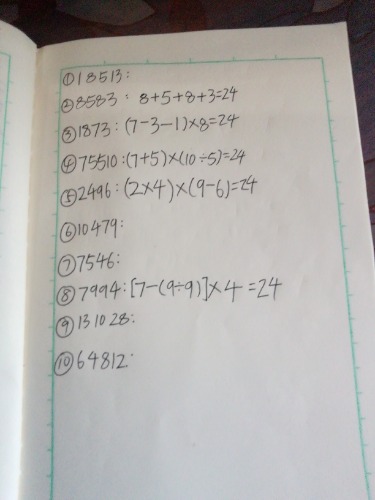 ①18513:
②8583: 8+5+8+3=24
③1873:(7-3-1)×8=24
④75510:(7+5)×(10÷5)=24
⑤2496:(2×4)×(9-6)=24
⑥10479:
⑦7546:
⑧7994:[7-(9÷9)]×4=24
⑨131028:
⑩64812: